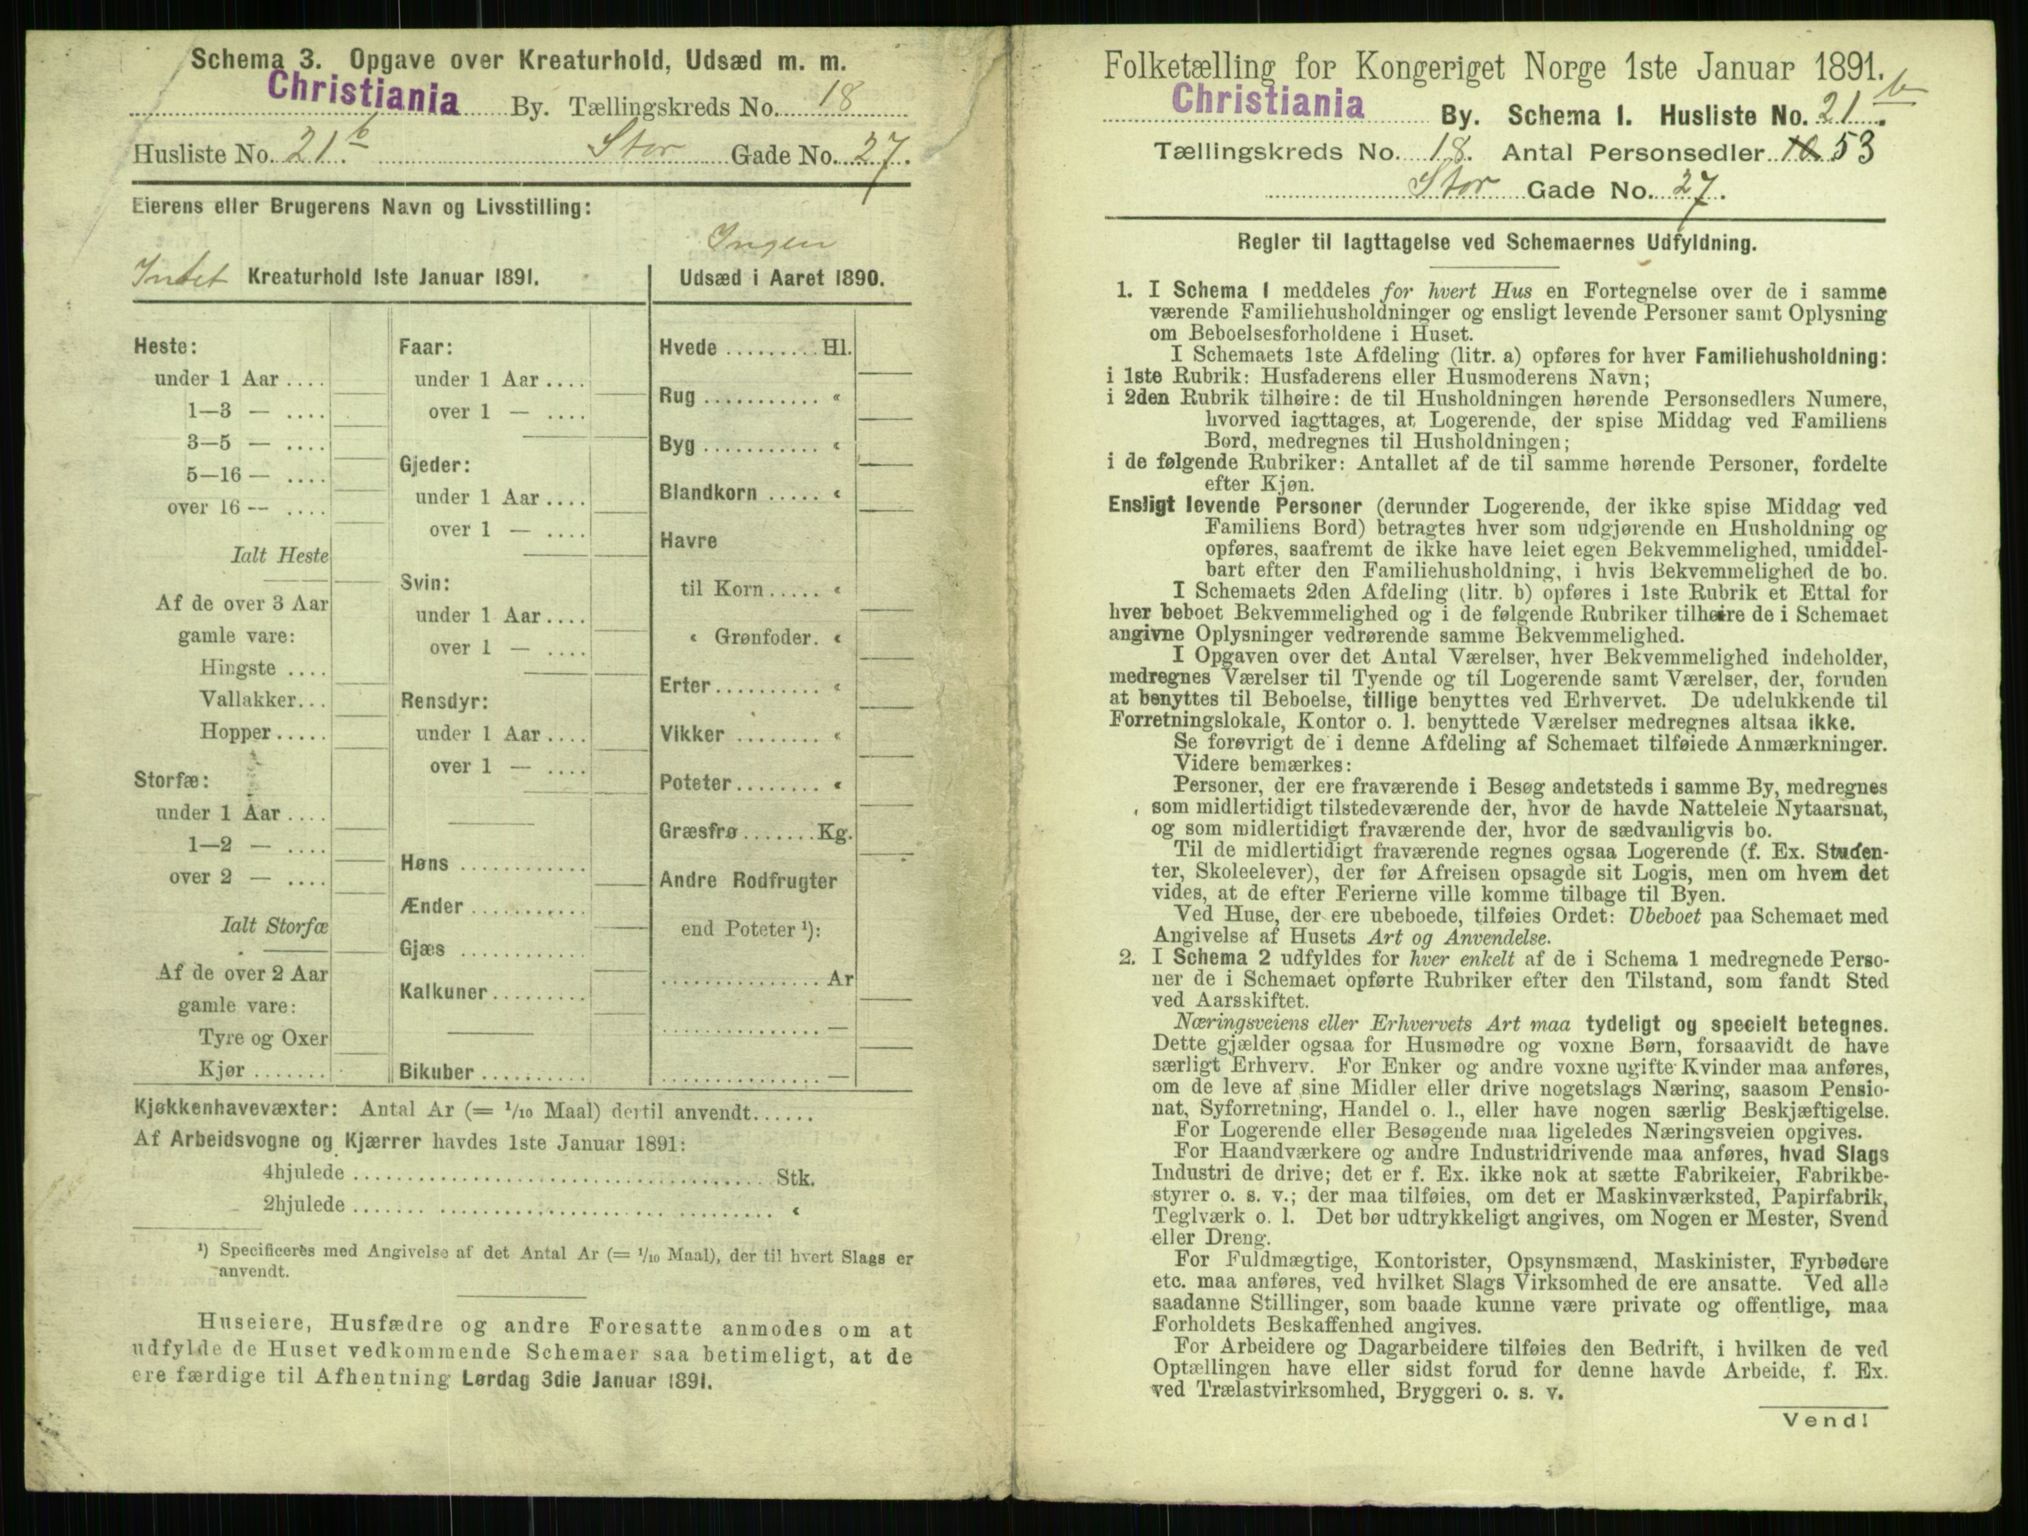 Schema 3. Opgave over Kreaturhold, Udsæd m. m.
Christiania By. Tællingskreds No. 18
Husliste No. 21 b. Stor Gade No. 27.
Eierens eller Brugerens Navn og Livsstilling:
Intet Kreaturhold 1ste Januar 1891.
Heste:
under 1 Aar ....
1—3 — ....
3—5 — ....
5—16 — ....
over 16 — ....
Ialt Heste
Af de over 3 Aar
gamle vare:
Hingste ....
Vallakker...
Hopper.....
Storfæ:
under 1 Aar ....
1—2 — ....
over 2 — ....
Ialt Storfæ
Af de over 2 Aar
gamle vare:
Tyre og Oxer
Kjør .......
Faar:
under 1 Aar ....
over 1 — ....
Gjeder:
under 1 Aar ....
over 1 — ....
Svin:
under 1 Aar ....
over 1 — ....
Rensdyr:
under 1 Aar ....
over 1 — ....
Høns ...........
Ænder ..........
Gjæs ...........
Kalkuner.........
Bikuber ..........
Ingen
Udsæd i Aaret 1890.
Hvede .........Hl.
Rug ........... «
Byg ........... «
Blandkorn ..... «
Havre
til Korn..... «
« Grønfoder. «
Erter.......... «
Vikker ........ «
Poteter........ «
Græsfrø.......Kg.
Andre Rodfrugter
end Poteter ¹):
............... Ar
............... —
............... —
Kjøkkenhavevæxter: Antal Ar (= 1/10 Maal) dertil anvendt......
Af Arbeidsvogne og Kjærrer havdes 1ste Januar 1891:
4hjulede .................................... Stk.
2hjulede .................................... «
¹) Specificeres med Angivelse af det Antal Ar (= 1/10 Maal), der til hvert Slags er
anvendt.
Huseiere, Husfædre og andre Foresatte anmodes om at
udfylde de Huset vedkommende Schemaer saa betimeligt, at de
ere færdige til Afhentning Lørdag 3die Januar 1891.
Folketælling for Kongeriget Norge 1ste Januar 1891.
Christiania By. Schema 1. Husliste No. 21 b.
Tællingskreds No. 18. Antal Personsedler 10 53
Stor Gade No. 27.
Regler til Iagttagelse ved Schemaernes Udfyldning.
1. I Schema 1 meddeles for hvert Hus en Fortegnelse over de i samme
værende Familiehusholdninger og ensligt levende Personer samt Oplysning
om Beboelsesforholdene i Huset.
I Schemaets 1ste Afdeling (litr. a) opføres for hver Familiehusholdning:
i 1ste Rubrik: Husfaderens eller Husmoderens Navn;
i 2den Rubrik tilhøire: de til Husholdningen hørende Personsedlers Numere,
hvorved iagttages, at Logerende, der spise Middag ved Familiens
Bord, medregnes til Husholdningen;
i de følgende Rubriker: Antallet af de til samme hørende Personer, fordelte
efter Kjøn.
Ensligt levende Personer (derunder Logerende, der ikke spise Middag ved
Familiens Bord) betragtes hver som udgjørende en Husholdning og
opføres, saafremt de ikke have leiet egen Bekvemmelighed, umiddel-
bart efter den Familiehusholdning, i hvis Bekvemmelighed de bo.
I Schemaets 2den Afdeling (litr. b) opføres i 1ste Rubrik et Ettal for
hver beboet Bekvemmelighed og i de følgende Rubriker tilhøire de i Schemaet
angivne Oplysninger vedrørende samme Bekvemmelighed.
I Opgaven over det Antal Værelser, hver Bekvemmelighed indeholder,
medregnes Værelser til Tyende og til Logerende samt Værelser, der, foruden
at benyttes til Beboelse, tillige benyttes ved Erhvervet. De udelukkende til
Forretningslokale, Kontor o. l. benyttede Værelser medregnes altsaa ikke.
Se forøvrigt de i denne Afdeling af Schemaet tilføiede Anmærkninger.
Videre bemærkes:
Personer, der ere fraværende i Besøg andetsteds i samme By, medregnes
som midlertidigt tilstedeværende der, hvor de havde Natteleie Nytaarsnat,
og som midlertidigt fraværende der, hvor de sædvanligvis bo.
Til de midlertidigt fraværende regnes ogsaa Logerende (f. Ex. Studen-
ter, Skoleelever), der før Afreisen opsagde sit Logis, men om hvem det
vides, at de efter Ferierne ville komme tilbage til Byen.
Ved Huse, der ere ubeboede, tilføies Ordet: Ubeboet paa Schemaet med
Angivelse af Husets Art og Anvendelse.
2. I Schema 2 udfyldes for hver enkelt af de i Schema 1 medregnede Perso-
ner de i Schemaet opførte Rubriker efter den Tilstand, som fandt Sted
ved Aarsskiftet.
Næringsveiens eller Erhvervets Art maa tydeligt og specielt betegnes.
Dette gjælder ogsaa for Husmødre og voxne Børn, forsaavidt de have
særligt Erhverv. For Enker og andre voxne ugifte Kvinder maa anføres,
om de leve af sine Midler eller drive nogetslags Næring, saasom Pensio-
nat, Syforretning, Handel o. l., eller have nogen særlig Beskjæftigelse.
For Logerende eller Besøgende maa ligeledes Næringsveien opgives.
For Haandværkere og andre Industridrivende maa anføres, hvad Slags
Industri de drive; det er f. Ex. ikke nok at sætte Fabrikeier, Fabrikbe-
styrer o. s. v.; der maa tilføies, om det er Maskinværksted, Papirfabrik,
Teglværk o. l. Det bør udtrykkeligt angives, om Nogen er Mester, Svend
eller Dreng.
For Fuldmægtige, Kontorister, Opsynsmænd, Maskinister, Fyrbødere
etc. maa anføres, ved hvilket Slags Virksomhed de ere ansatte. Ved alle
saadanne Stillinger, som baade kunne være private og offentlige, maa
Forholdets Beskaffenhed angives.
For Arbeidere og Dagarbeidere tilføies den Bedrift, i hvilken de ved
Optællingen have eller sidst forud for denne havde Arbeide, f. Ex.
ved Trælastvirksomhed, Bryggeri o. s. v.
Vend!